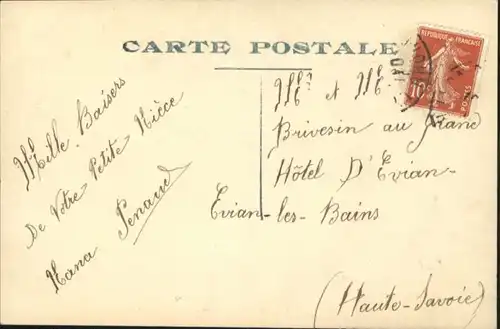 CARTE POSTALE
REPUBLIQUE FRANÇAISE
10
POSTES
Mille Baisers
De Votre Petite Nièce
Nana Penaud
Mr et Me
Brivesin au Grand
Hôtel D'Evian
Evian-les-Bains
(Haute-Savoie)